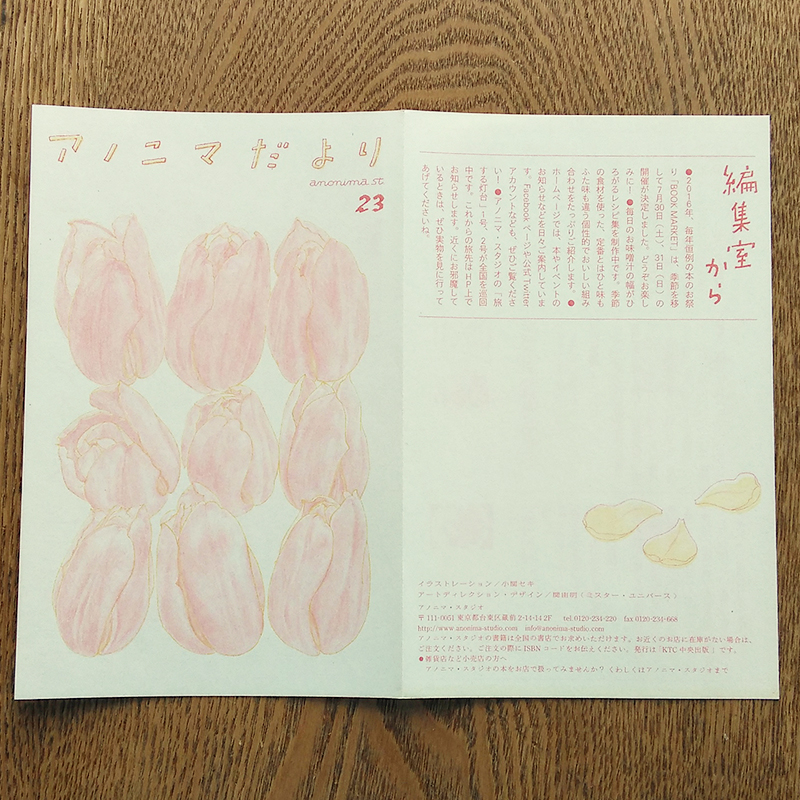 アノニマだより
anonima.st
23
編集室
から
●2016年、毎年恒例の本のお祭
り「BOOK MARKET」は、季節を移
して7月30日(土)、31日(日)の
開催が決定しました。どうぞお楽し
みに!●毎日のお味噌汁の幅がひ
ろがるレシピ集を制作中です。季節
の食材を使った、定番とはひと味も
ふた味も違う個性的でおいしい組み
合わせをたっぷりご紹介します。●
ホームページでは、本やイベントの
お知らせなどを日々ご案内していま
す。Facebookページや公式Twitter
アカウントなども、ぜひご覧くださ
い!●アノニマ・スタジオの「旅
する灯台」1号、2号が全国を巡回
中です。これからの旅先はHP上で
お知らせします。近くにお邪魔して
いるときは、ぜひ実物を見に行って
あげてくださいね。
イラストレーション/小関セキ
アートディレクション・デザイン/関宙明(ミスター・ユニバース)
アノニマ・スタジオ
〒111-0051 東京都台東区蔵前2-14-14 2F tel.0120-234-220 fax 0120-234-668
http://www.anonima-studio.com info@anonima-studio.com
アノニマ・スタジオの書籍は全国の書店でお求めいただけます。お近くのお店に在庫がない場合は、
ご注文ください。ご注文の際にISBNコードをお伝えください。発行は「KTC中央出版」です。
●雑貨店など小売店の方へ
アノニマ・スタジオの本をお店で扱ってみませんか? くわしくはアノニマ・スタジオまで